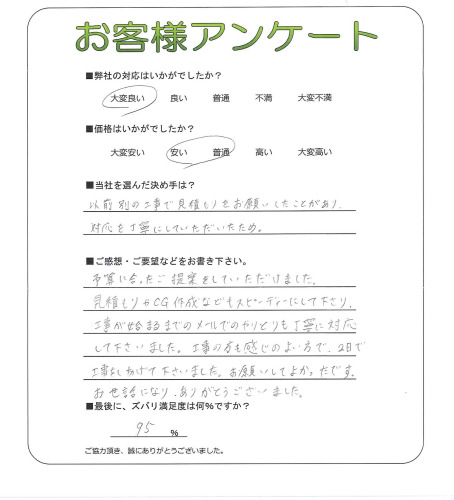 お客様アンケート
■弊社の対応はいかがでしたか？
大変良い 良い 普通 不満 大変不満
■価格はいかがでしたか？
大変安い 安い 普通 高い 大変高い
■当社を選んだ決め手は？
以前別の工事で見積もりをお願いしたことがあり、
対応を丁寧にしていただいたため。
■ご感想・ご要望などをお書き下さい。
予算に合ったご提案をしていただけました。
見積もりやCG作成などもスピーディーにして下さり、
工事が始まるまでのメールでのやりとりも丁寧に対応
して下さいました。工事の方も感じのよい方で、2日で
工事をしあげて下さいました。お願いしてよかったです。
お世話になり、ありがとうございました。
■最後に、ズバリ満足度は何%ですか？
95 %
ご協力頂き、誠にありがとうございました。